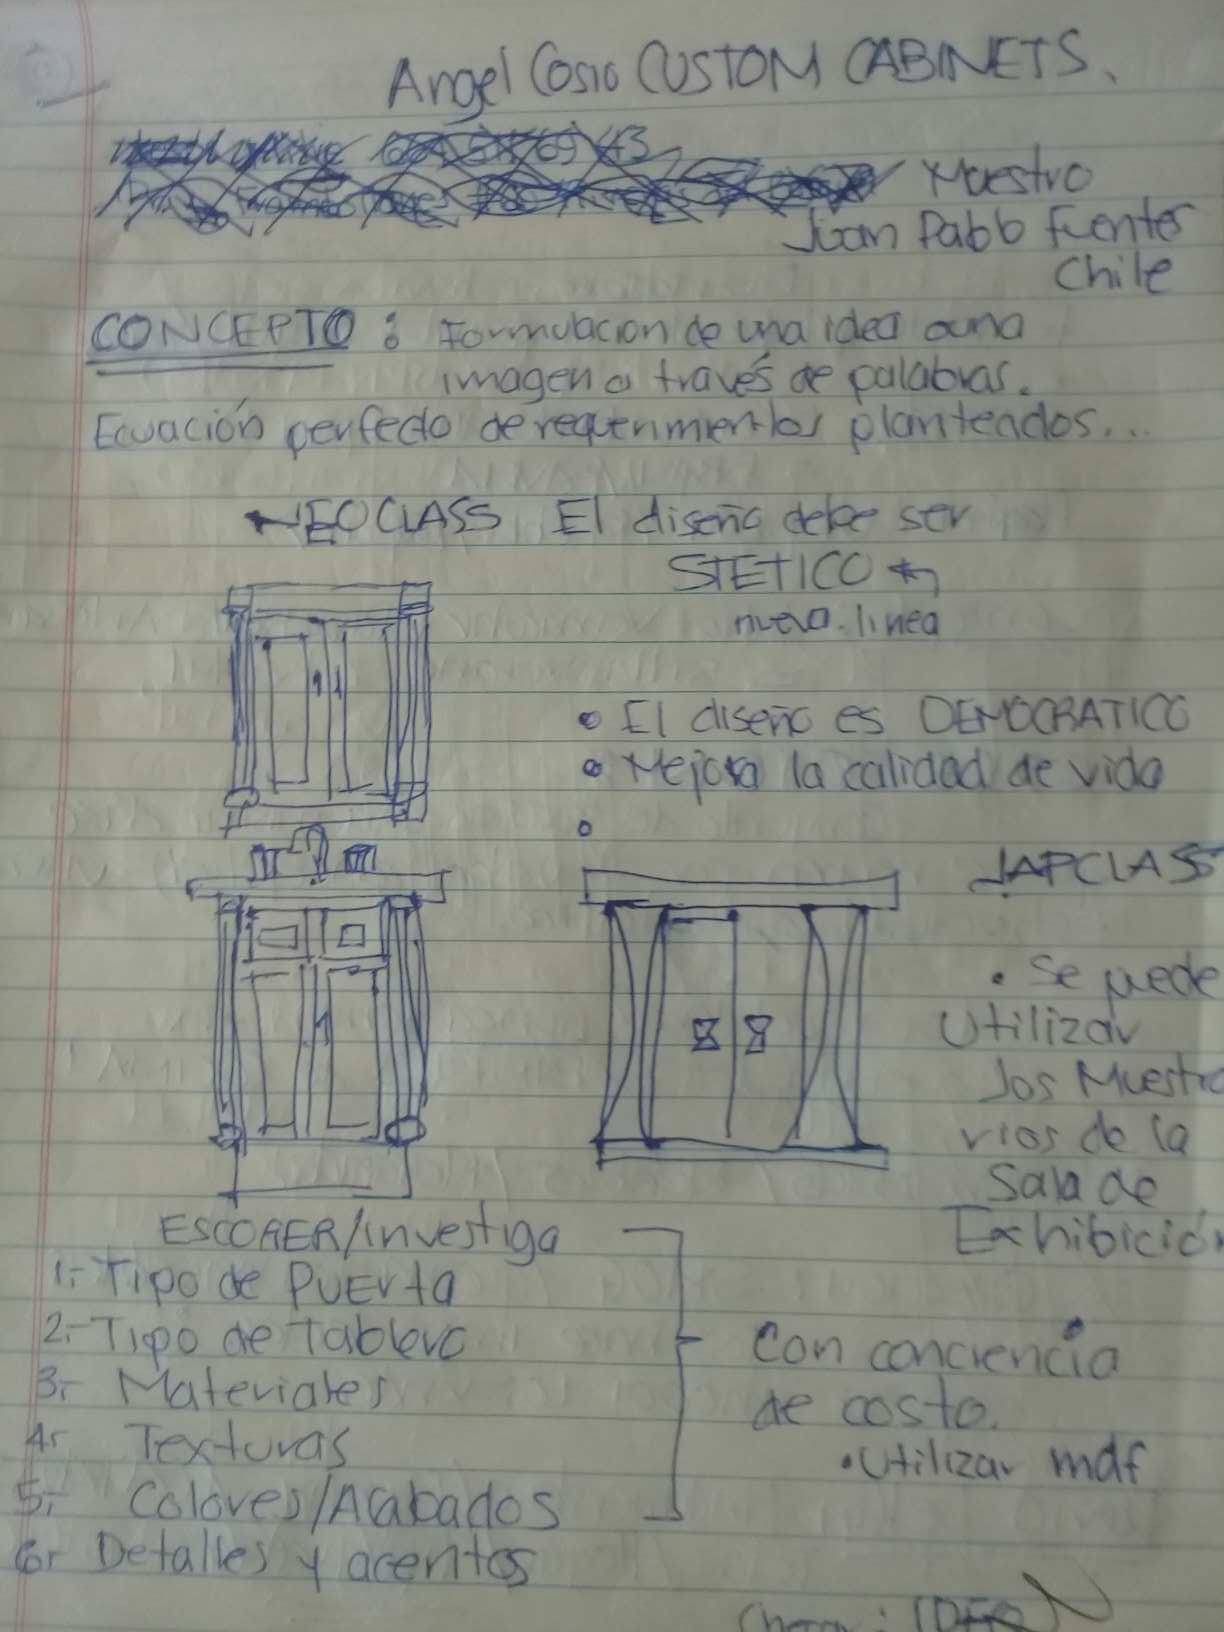 Angel Cosio CUSTOM CABINETS.
Maestro
Juan Pablo Fuentes
Chile
CONCEPTO: Formulacion de una idea o una
imagen a través de palabras.
Ecuación perfecta de requerimientos planteados...
NEOCLASS El diseño debe ser
STETICO
nueva linea
• El diseño es DEMOCRATICO
• Mejora la calidad de vida
JAPCLASS
• Se puede
Utilizar
los Muestra
rios de la
Sala de
Exhibición
ESCOGER/investiga
1.- Tipo de PUErta
2.- Tipo de Tablero
3.- Materiales
4.- Texturas
5.- Colores/Acabados
6.- Detalles y acentos
Con conciencia
de costo.
• Utilizar mdf